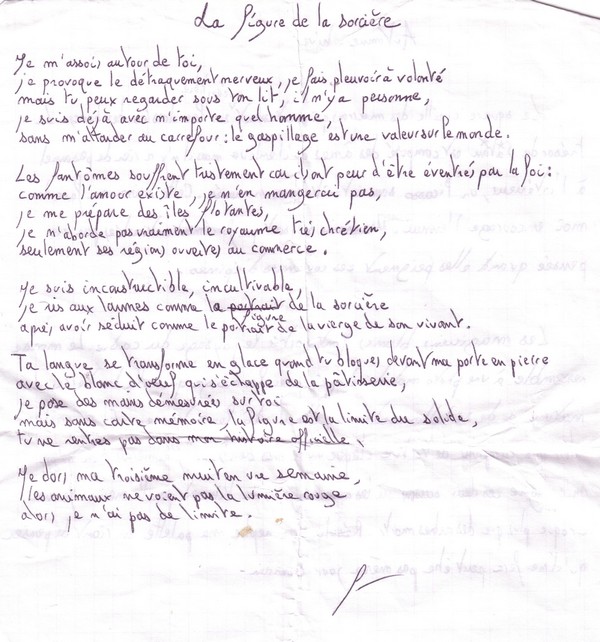 La figure de la sorcière
Je m'assois autour de toi,
je provoque le détraquement nerveux, je fais pleuvoir à volonté
mais tu peux regarder sous ton lit, il n'y a personne,
je suis déjà avec n'importe quel homme,
sans m'attarder au carrefour : le gaspillage est une valeur sur le monde.
Les fantômes souffrent tristement car ils ont peur d'être éventrés par la foi :
comme l'amour existe, je n'en mangerai pas,
je me prépare des îles flottantes,
je n'aborde pas vraiment le royaume très chrétien,
seulement ses régions ouvertes au commerce.
Je suis inconstructible, incultivable,
je ris aux larmes comme la portrait de la sorcière
figure
après avoir séduit comme le portrait de la vierge de son vivant.
Ta langue se transforme en glace quand tu bloques devant ma porte en pierre
avec le blanc d'oeuf qui s'échappe de la pâtisserie,
je pose des mains démesurées sur toi
mais sans carte mémoire, la figure est la limite du solide,
tu ne rentres pas dans mon histoire officielle.
Je dors ma troisième nuit en une semaine,
les animaux ne voient pas la lumière rouge
alors je n'ai pas de limite.